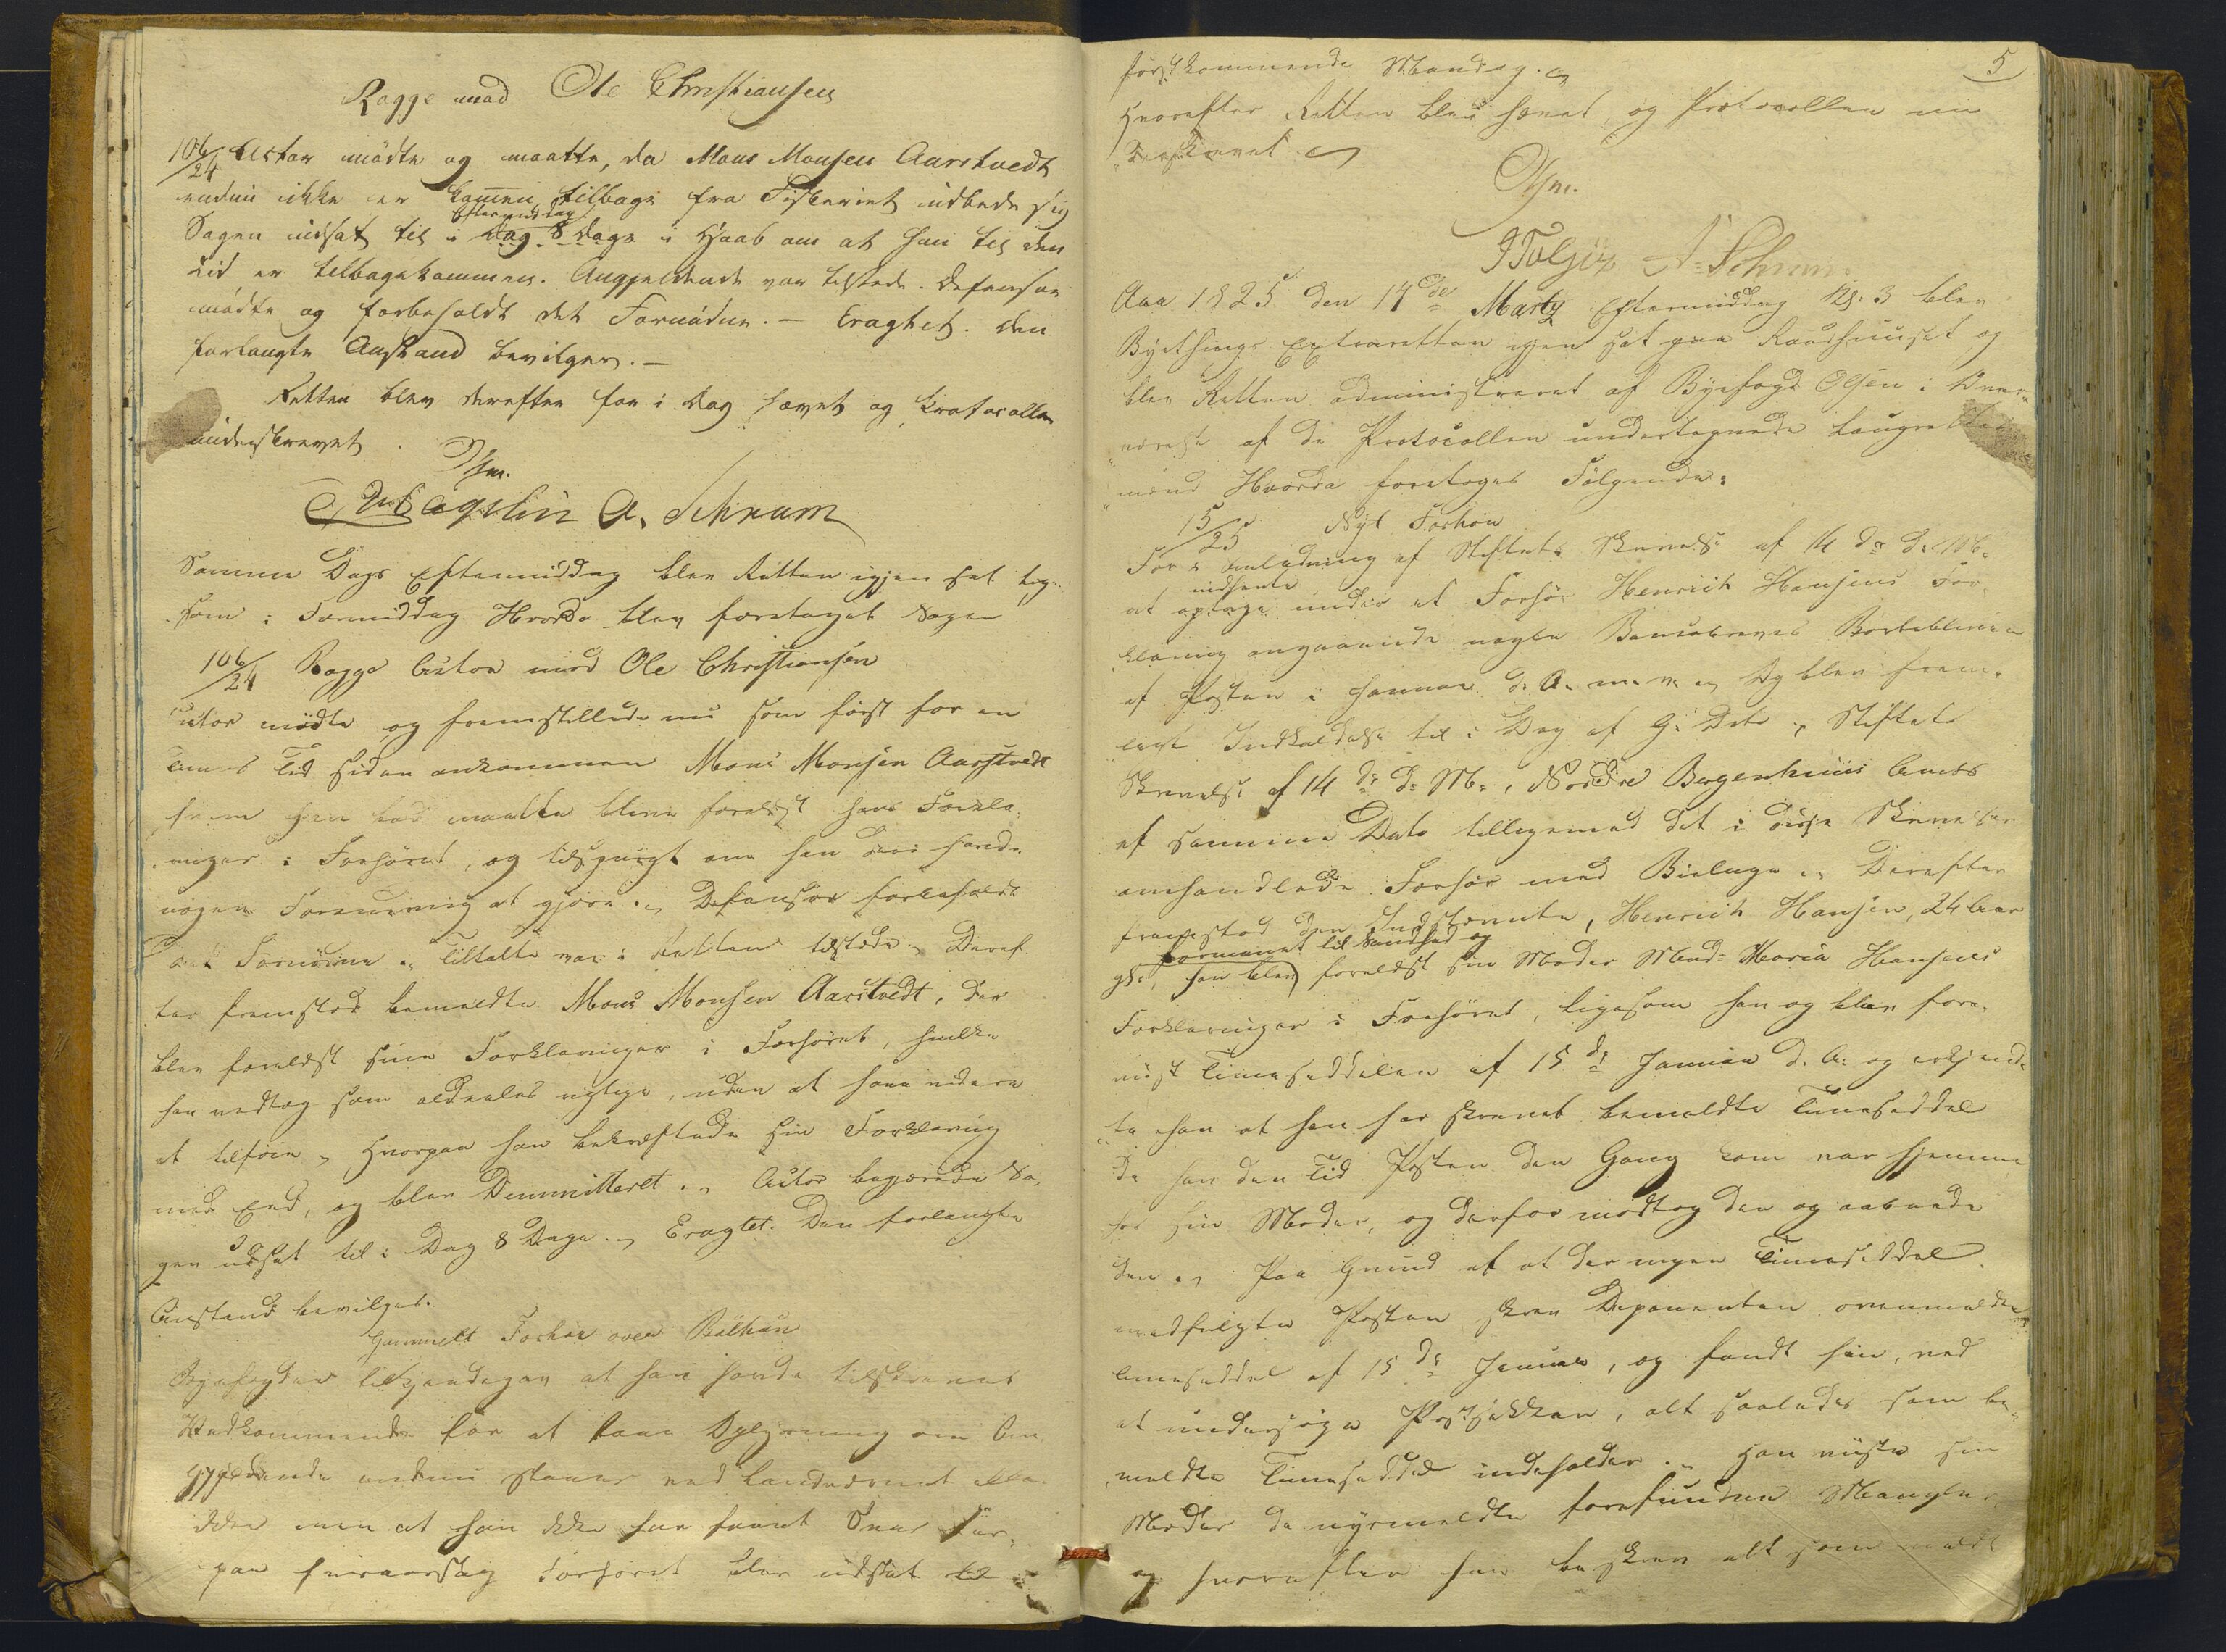 Ragge mod Ole Christiansen
106/24 Actor mödte og maatte, da Mons Monsen Aarstvedt
endnu ikke er kommen tilbage fra Fiskeriet udbede sig
Eftermiddag
Sagen udsat til i Dag 8 Dage i Haab om at han til den
Tid er tilbagekommen. Angjeldende var tilstede. Defensor
mödte og forbeholdt det Fornödne. — Eragtet. Den
forlangte Anstand bevilges. —
Retten blev derefter for i Dag hævet og Protocollen
underskrevet.
Olsen.
A. Schram
Samme Dags Eftermiddag blev Retten igjen sat lige
som i Formiddag Hvorda blev foretaget Sagen
106/24 Ragge Actor mod Ole Christiansen
Actor mödte og fremstillede nu som först for en
Times Tid siden ankommen Mons Monsen Aarstvedt
hvem han bad maatte blive forelæst hans Forkla-
ringer i Forhöret, og tilspurgt om han deri havde
nogen Forandring at gjöre. Defensor forbeholdt
det Fornödne. Tiltalte var i Retten tilstede. Deref-
ter fremstod bemeldte Mons Monsen Aarstvedt, der
blev forelæst sine Forklaringer i Forhöret, hvilke
han vedtog som aldeeles rigtige, uden at have videre
at tilföie, Hvorpaa han bekræftede sin Forklaring
med Eed, og blev Demmitteret. Actor begjærede Sa-
gen udsat til i Dag 8 Dage. Eragtet. Den forlangte
Anstand bevilges.
Gammelt Forhör over
Byefogden tilkjendegav at han havde tilskrevet
Vedkommende for at faae Oplysning om An-
gjeldende endnu staaer ved Landværnet eller
ikke men at han ikke har faaet Svar her-
paa hvisaarsag Forhöret blev udsat til
5
förstkommende Mandag.
Hvorefter Retten blev hævet, og Protocollen un-
derskrevet.
Olsen.
A. Schram
Aar 1825 den 17de Marty Eftermiddag Kl. 3 blev
Byethings Extraretten igjen sat paa Raadhuuset og
blev Retten administreret af Byefogd Olsen i Over-
værelse af de Protocollen undertegnede Laugrettes-
mænd Hvorda foretoges Fölgende:
15/25 Nyt Forhör
For i Anledning af Stiftets Skrivelse af 14 de d. M.
indhente
at optage under et Forhör Henrich Hansens For-
klaring angaaende nogle Bancobreves Bortblivelse
af Posten i Januar d. A. m. v. Og blev frem-
lagt Indkaldelse til i Dag af G. Dato, Stiftets
Skrivelse af 14 de d. M., Nordre Bergenhuus Amts
af samme Dato tilligemed det i disse Skrivelser
omhandlede Forhör med Bielage. Derefter
fremstod den Indstevnte, Henrich Hansen, 24 Aar
formanet til Sandhed og
gl., han blev forelæst sin Moder Mad. Maria Hansens
Forklaringer i Forhöret, ligesom han og blev fore-
viist Timeseddelen af 15 de Januar d. A. og erkjend-
te han at han har skrevet bemeldte Timeseddel
da han den Tid Posten den Gang kom var hjemme
hos sin Moder, og derfor modtog den og aabnede
den. Paa Grund af at der ingen Timeseddel
medfulgte Posten skrev Deponenten ovenmeldte
Timeseddel af 15 de Januar, og fandt han, ved
at undersöge Postsækken, alt saaledes som be-
meldte Timeseddel indeholder. Han viiste sin
Moder de nysmeldte forefundne Mangler
og hvorefter han beskrev alt som meldt